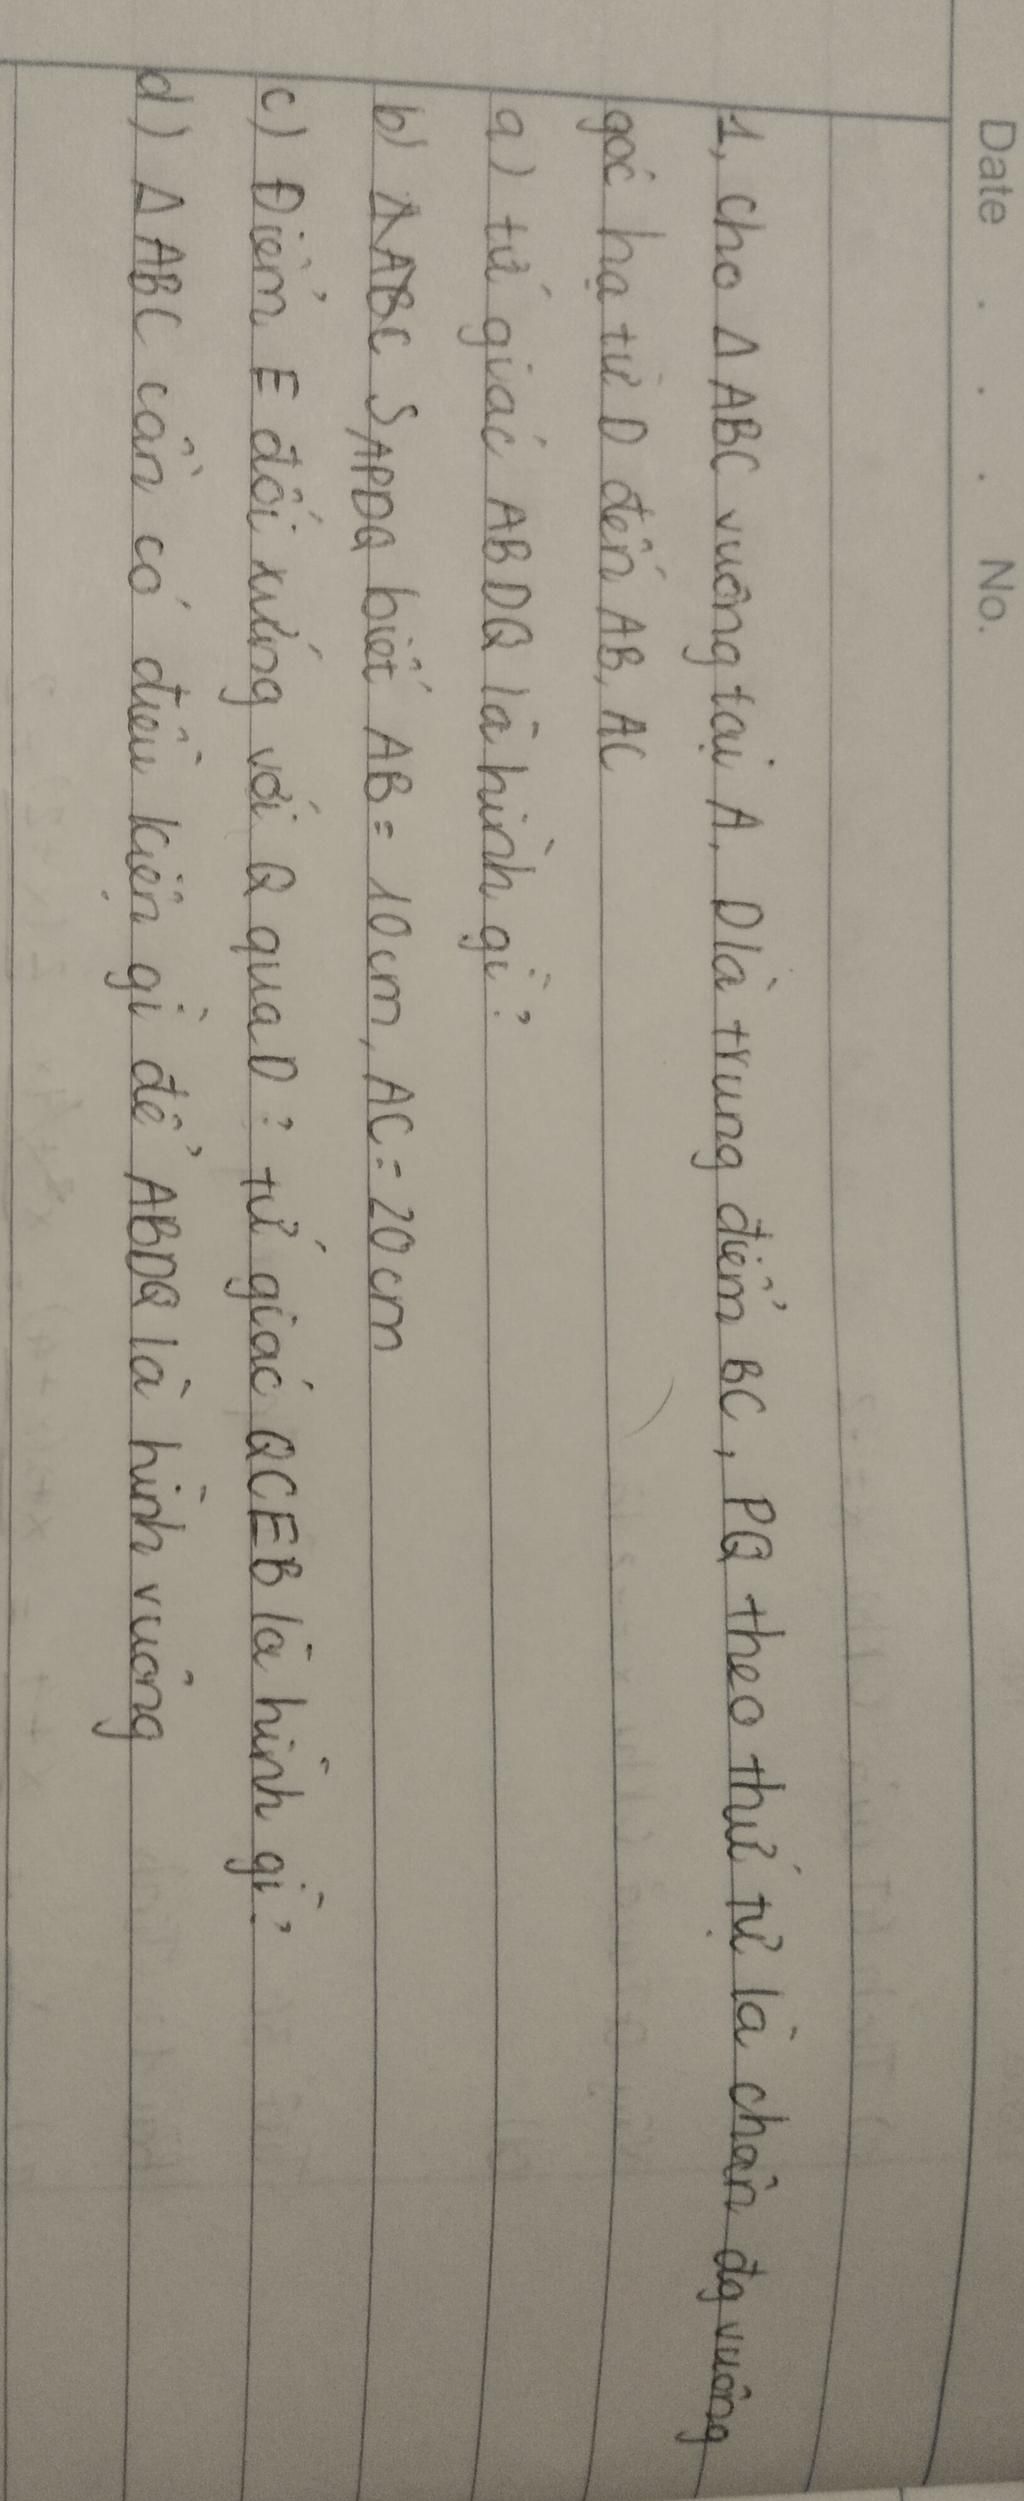 Date . . . No.
1, cho Δ ABC vuông tại A, D là trung điểm BC, PQ theo thứ tự là chân đg vuông
góc hạ từ D đến AB, AC
a) tứ giác ABDQ là hình gì?
b) ΔABC SAPDQ biết AB = 10cm, AC = 20cm
c) Điểm E đối xứng với Q qua D? tứ giác QCEB là hình gì?
d) Δ ABC cần có điều kiện gì để ABDQ là hình vuông